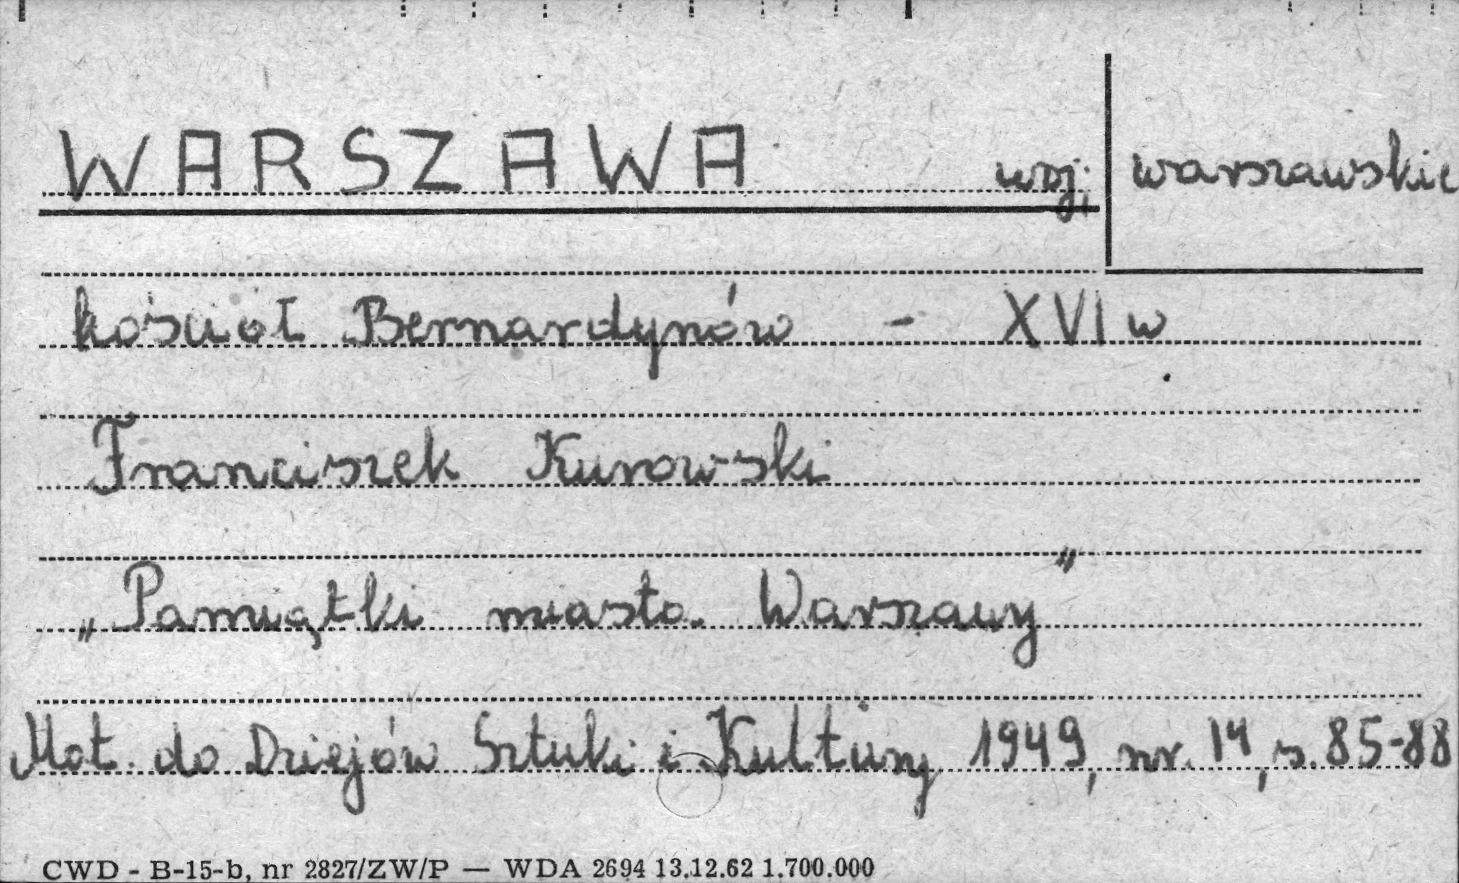 WARSZAWA woj. warszawskie
kościół Bernardynów - XVI w
Franciszek Kurowski
„Pamiątki miasta Warszawy"
Mat. do Dziejów Sztuki i Kultury 1949, nr. 14, s. 85-88
CWD - B-15-b, nr 2827/ZW/P — WDA 2694 13.12.62 1.700.000